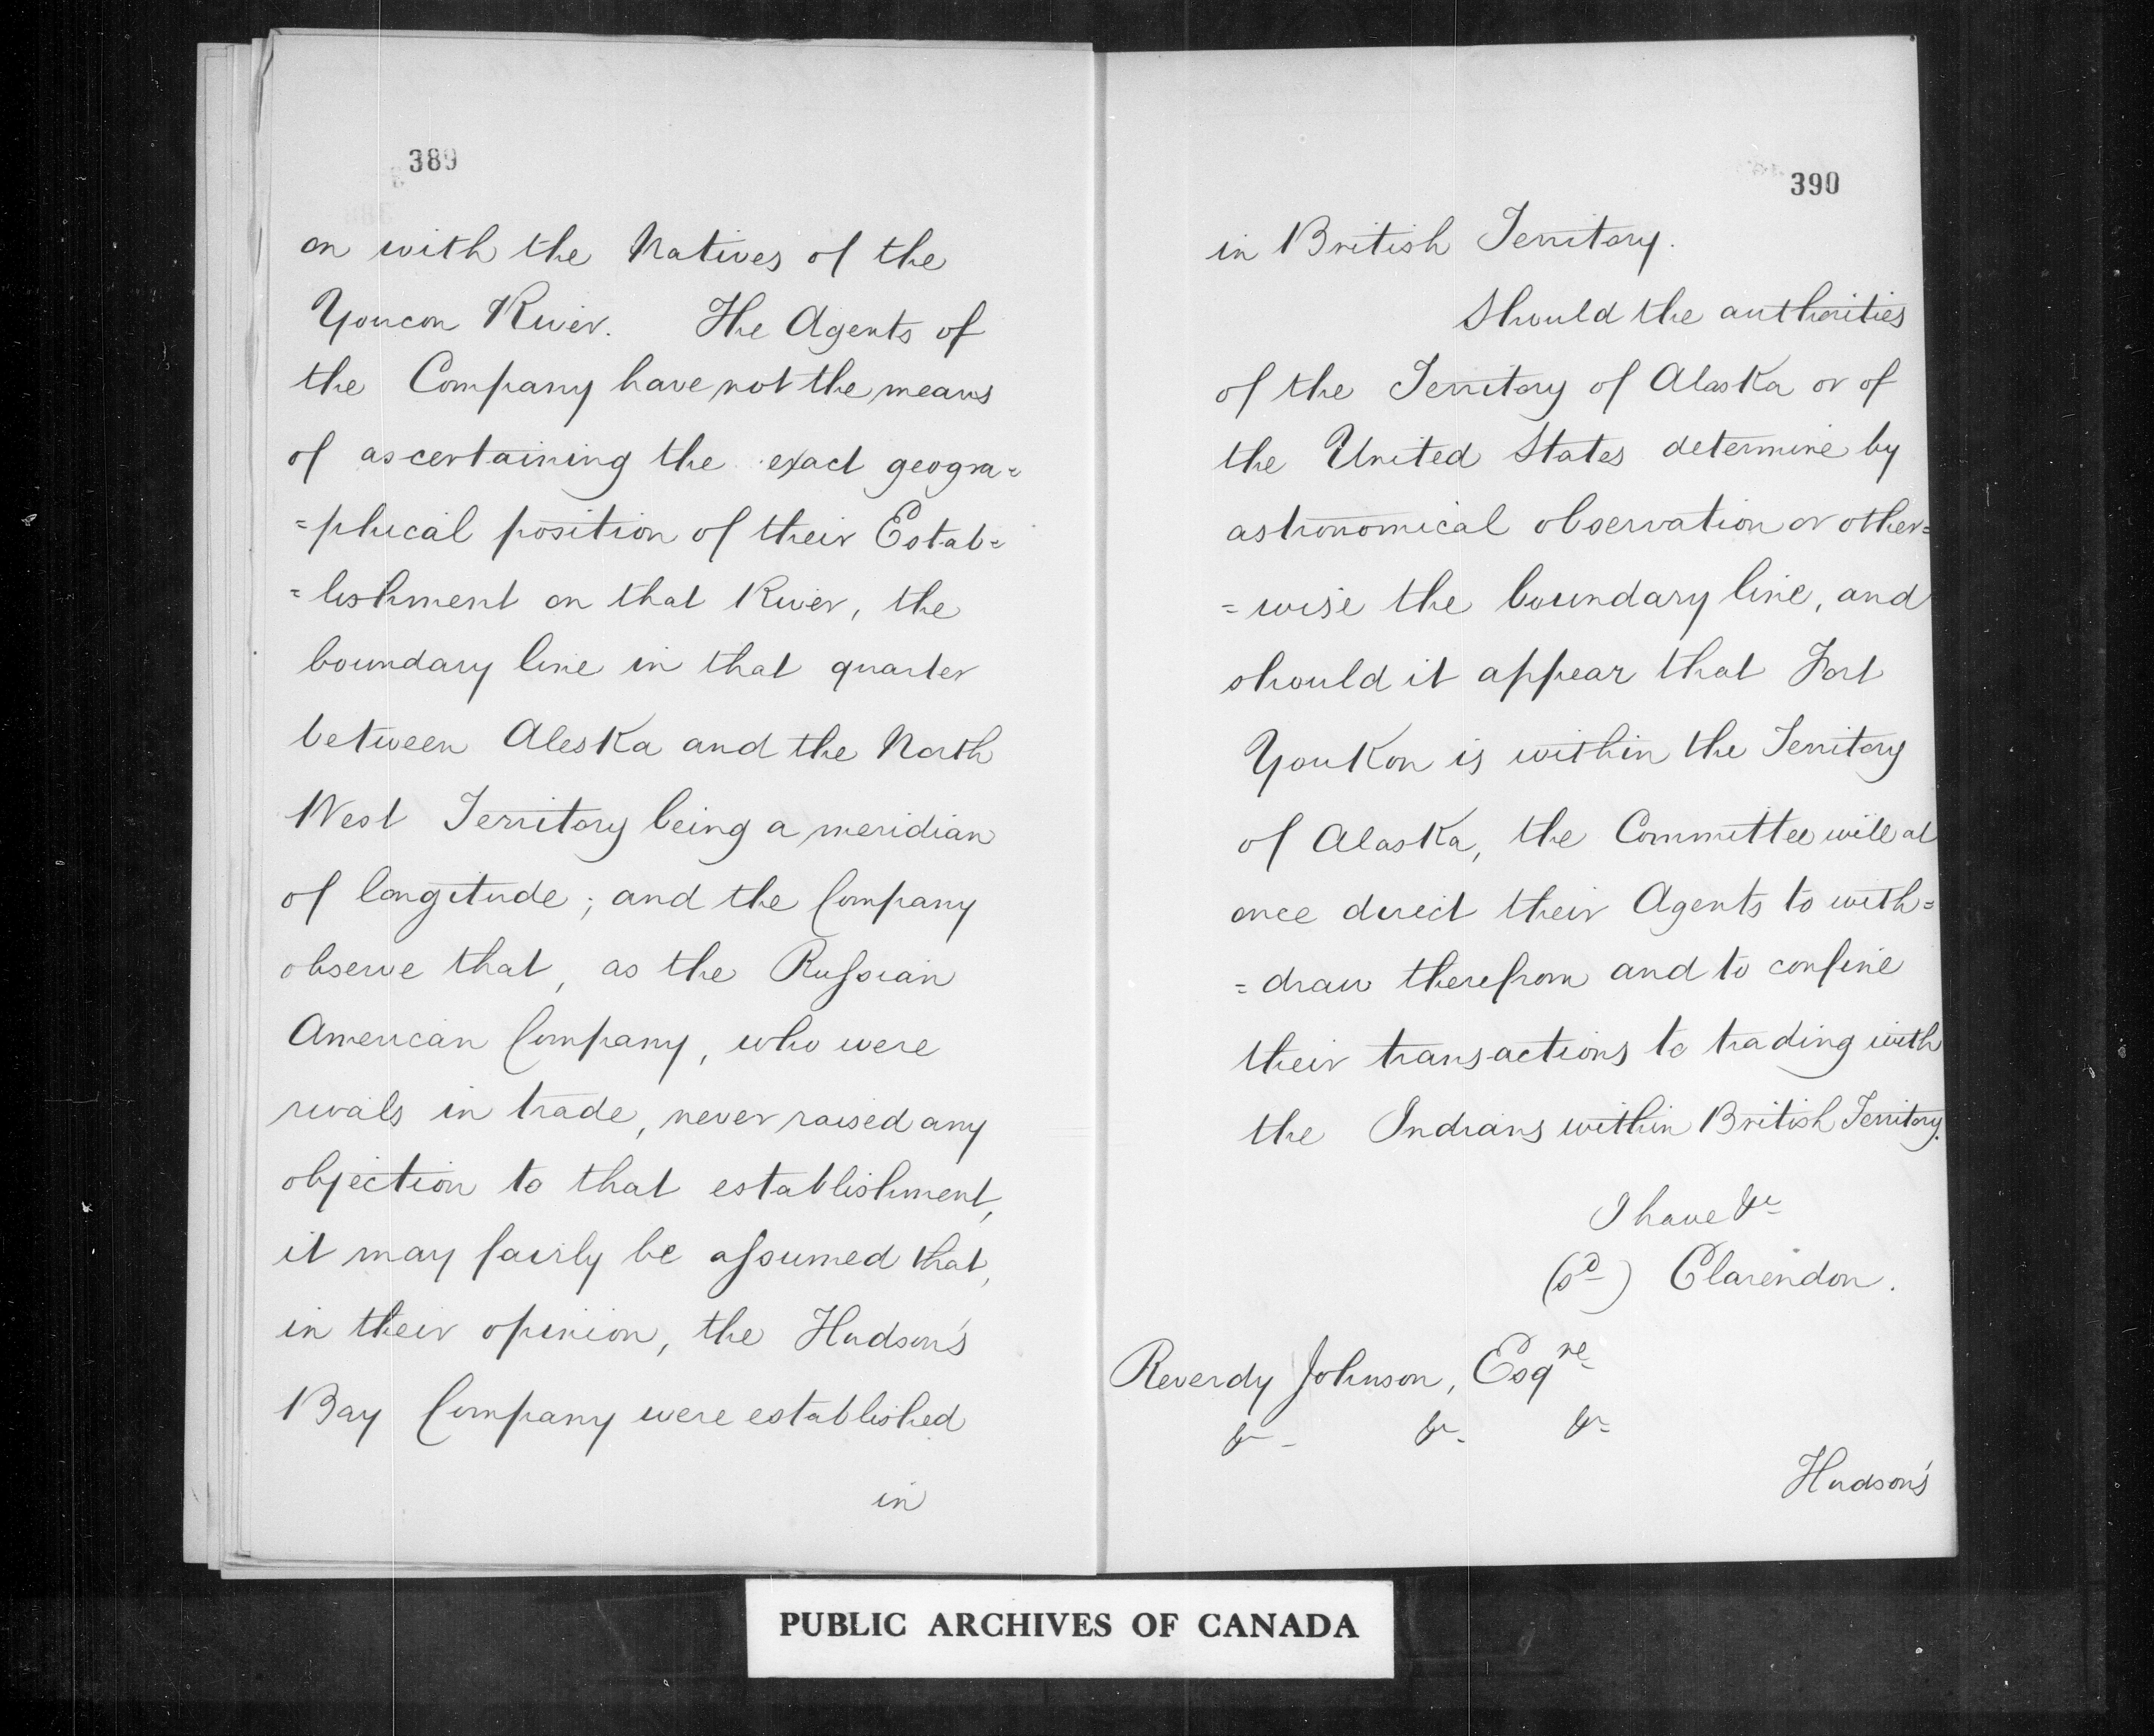 389
on with the Natives of the
Youcon River. The Agents of
the Company have not the means
of ascertaining the exact geogra=
=phical position of their Estab=
=lishment on that River, the
boundary line in that quarter
between Aleska and the North
West Territory being a meridian
of longitude; and the Company
observe that, as the Russian
American Company, who were
rivals in trade, never raised any
objection to that establishment,
it may fairly be assumed that,
in their opinion, the Hudson's
Bay Company were established
in
390
in British Territory.
Should the authorities
of the Territory of Alaska or of
the United States determine by
astronomical observation or other=
=wise the boundary line, and
should it appear that Fort
Youkon is within the Territory
of Alaska, the Committee will at
once direct their Agents to with=
=draw therefrom and to confine
their transactions to trading with
the Indians within British Territory.
I have &c
(sd) Clarendon.
Reverdy Johnson, Esqre
&c &c &c
Hudson's
PUBLIC ARCHIVES OF CANADA